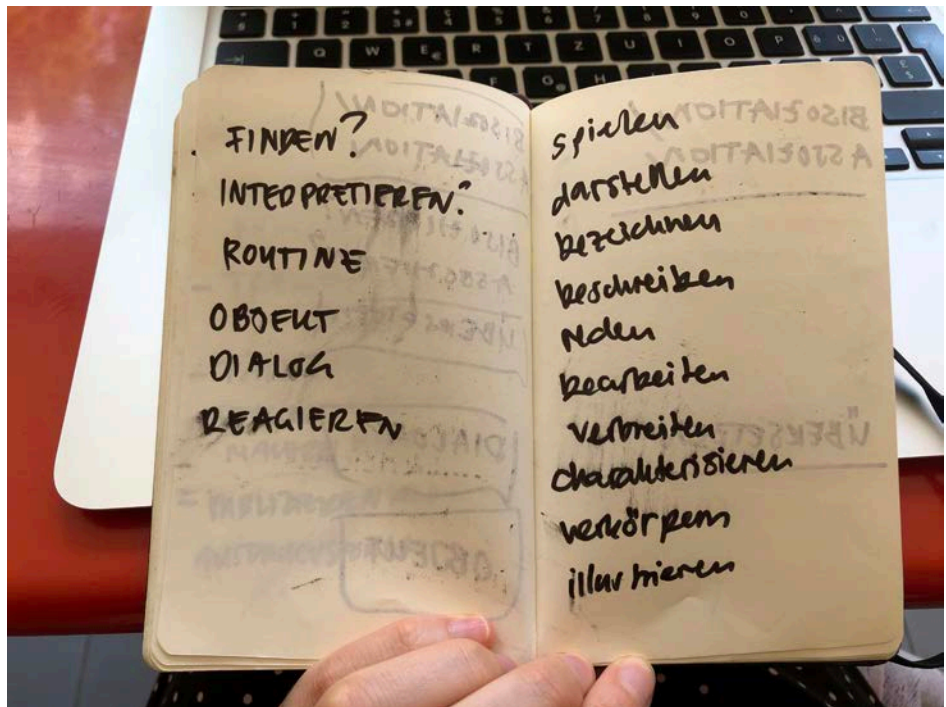 FINDEN?
INTERPRETIEREN?
ROUTINE
OBJEKT
DIALOG
REAGIEREN
spielen
darstellen
bezeichnen
beschreiben
reden
bearbeiten
verbreiten
charakterisieren
verkörpern
illustrieren